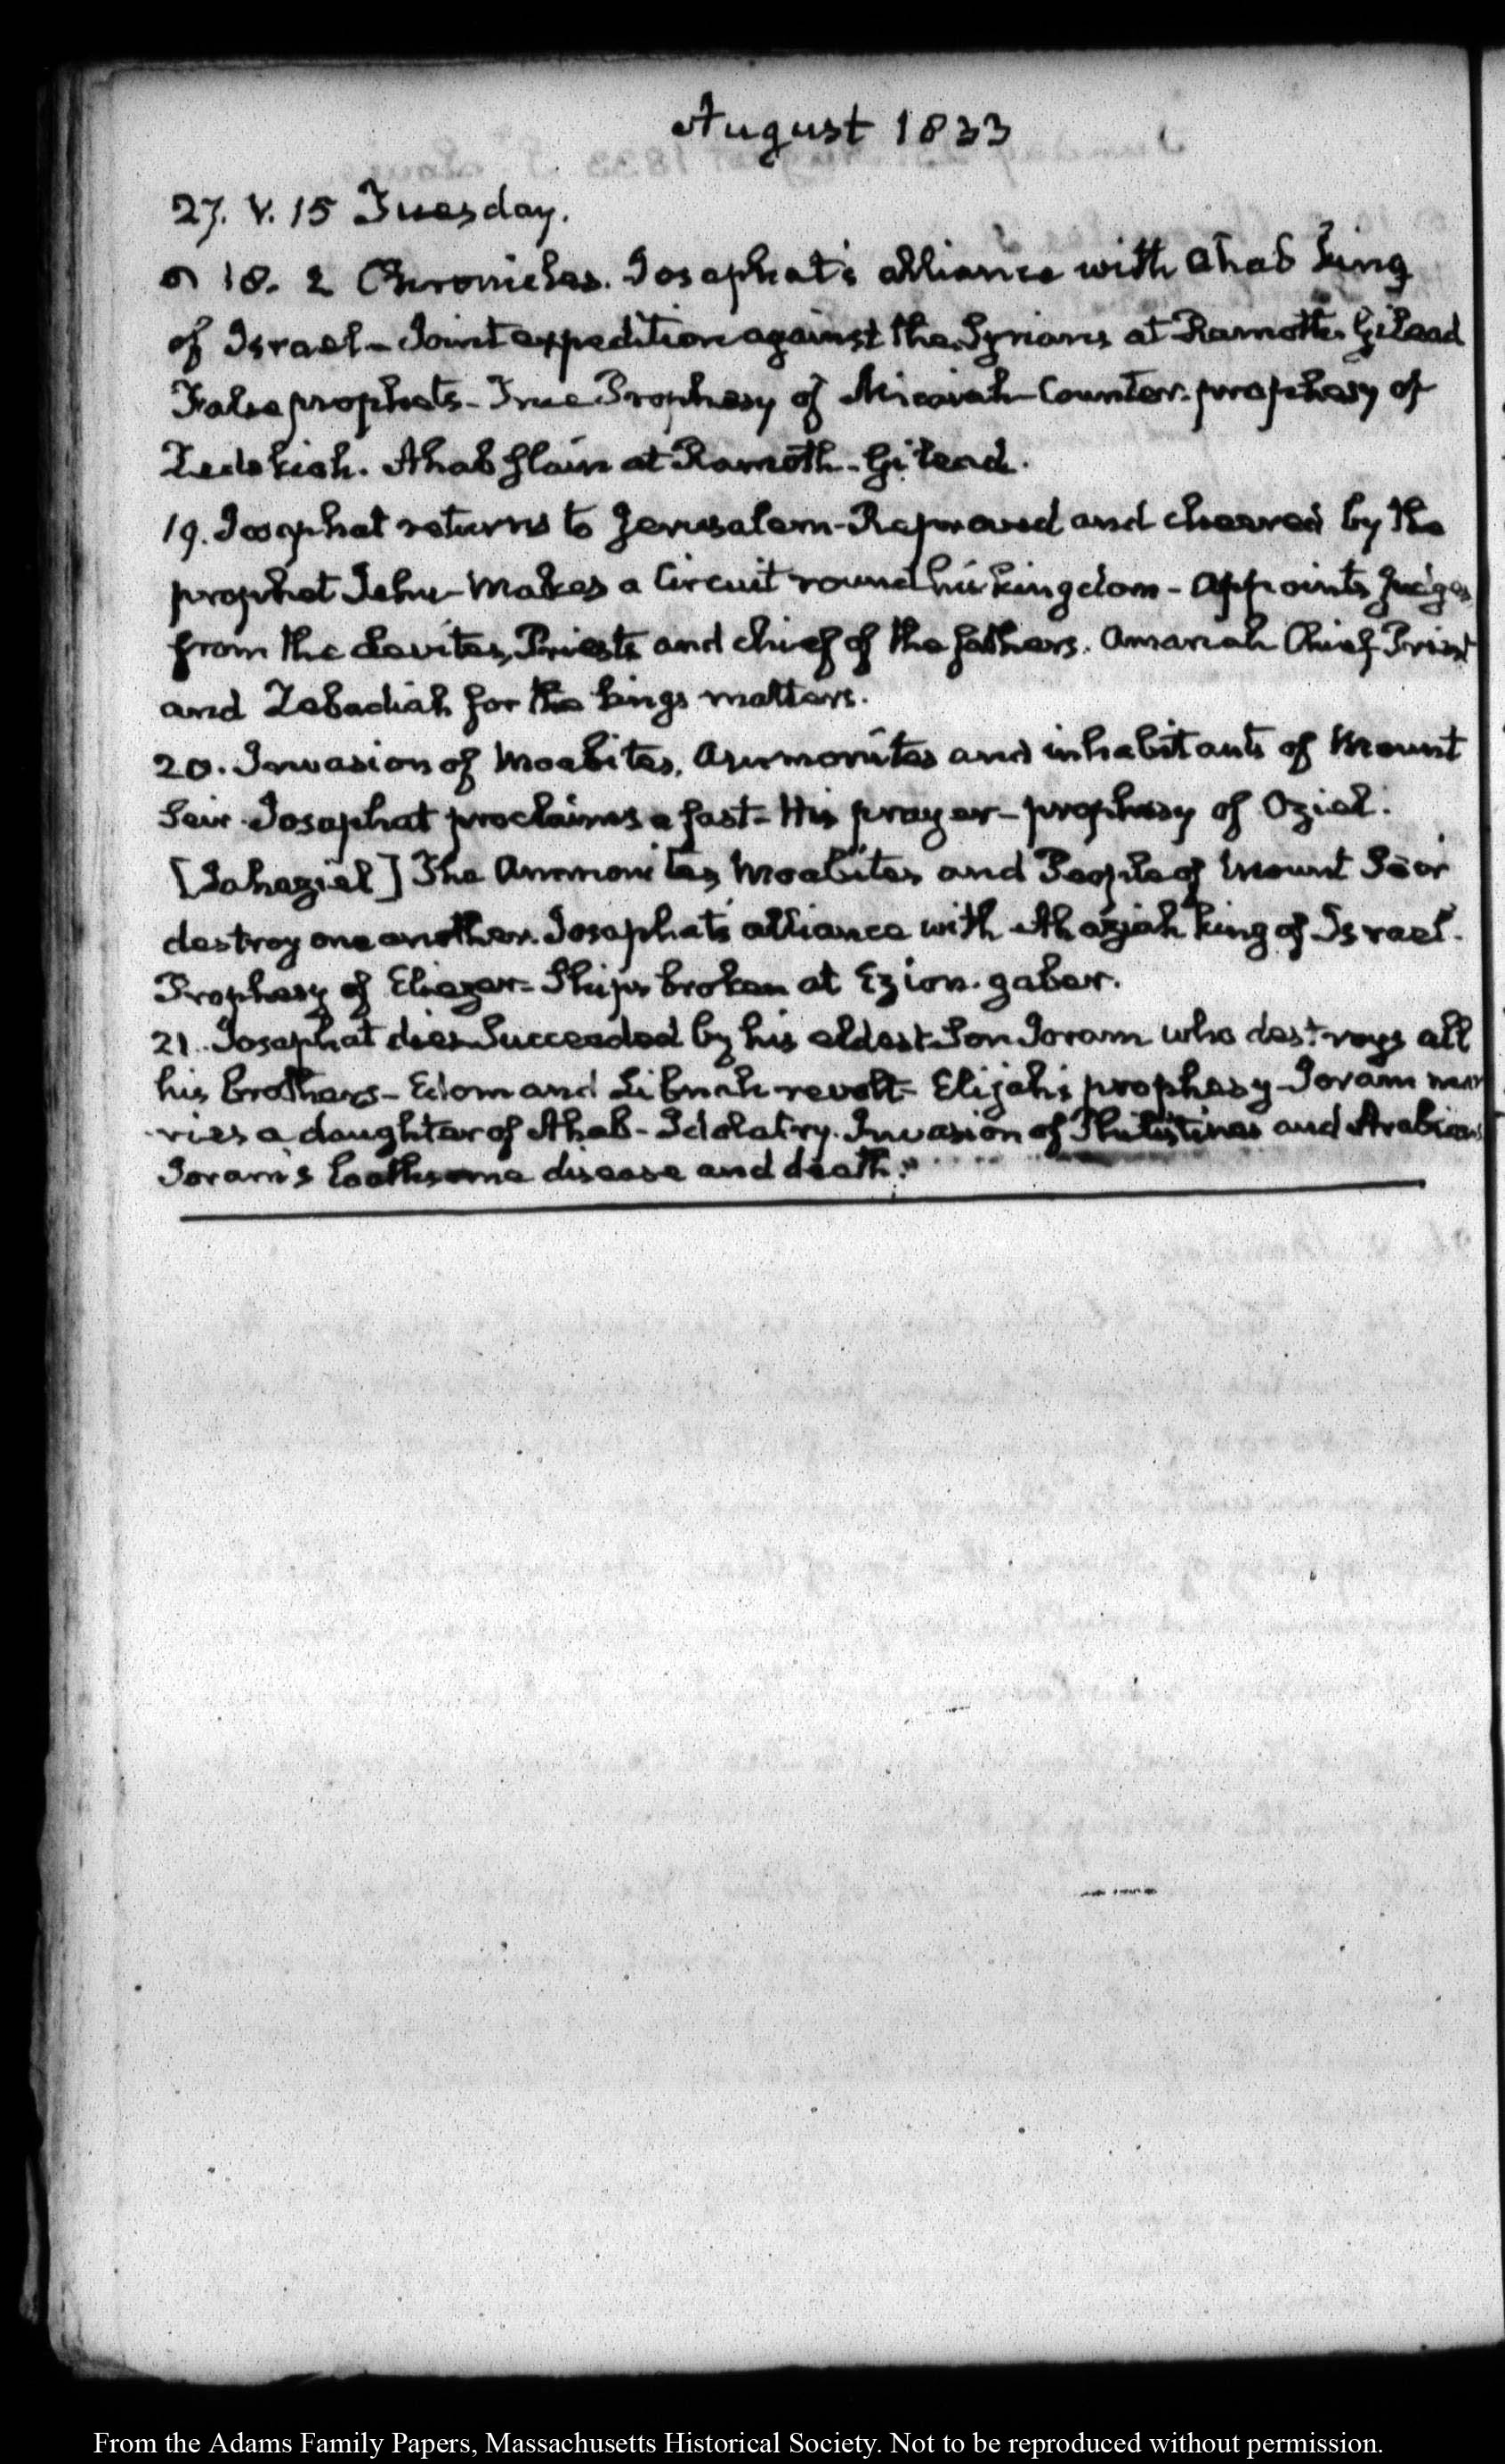 August 1833
27. V. 15 Tuesday.
18. 2 Chronicles. Josaphat's alliance with Ahab King
of Israel - Joint expedition against the Syrians at Ramoth-Gilead
False prophets - True Prophesy of Micaiah - Counter-prophesy of
Zedekiah. Ahab slain at Ramoth-Gilead.
19. Josaphat returns to Jerusalem - Reproved and cheered by the
prophet Jehu - Makes a Circuit round his kingdom - Appoints Judges
from the Levites, Priests and chief of the fathers. Amariah Chief Priest
and Zebadiah for the kings matters.
20. Invasion of Moabites, Ammonites and inhabitants of Mount
Seir. Josaphat proclaims a fast - His prayer - prophesy of Oziel.
[Jahaziel] The Ammonites, Moabites and People of Mount Seir
destroy one another. Josaphat's alliance with Ahaziah king of Israel.
Prophesy of Eliezer - Ships broken at Ezion-gaber.
21. Josaphat dies. Succeeded by his eldest Son Joram who destroys all
his brothers - Edom and Libnah revolt - Elijah's prophesy - Joram mar
ries a daughter of Ahab - Idolatry. Invasion of Philistines and Arabians
Joram's loathsome disease and death.
From the Adams Family Papers, Massachusetts Historical Society. Not to be reproduced without permission.